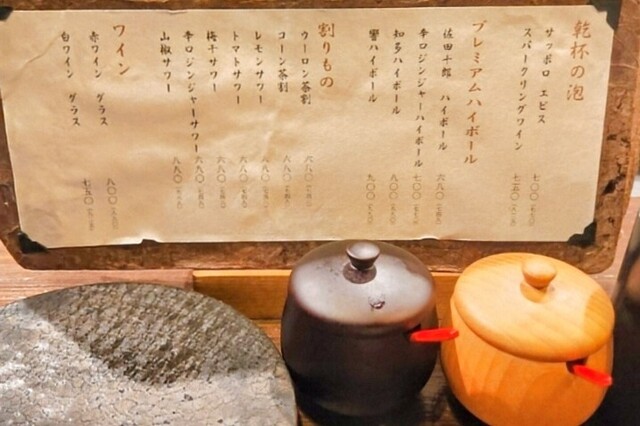 乾杯の泡
サッポロ エビス 七〇〇
スパークリングワイン 七五〇
プレミアムハイボール
佐田十郎 ハイボール 六八〇
辛口ジンジャーハイボール 七〇〇
知多ハイボール 八〇〇
響ハイボール 九〇〇
割りもの
ウーロン茶割 六八〇
コーン茶割 六八〇
レモンサワー 六八〇
トマトサワー 六八〇
梅干サワー 六八〇
辛口ジンジャーサワー 六八〇
山椒サワー 八八〇
ワイン
赤ワイン グラス 八〇〇
白ワイン グラス 七五〇